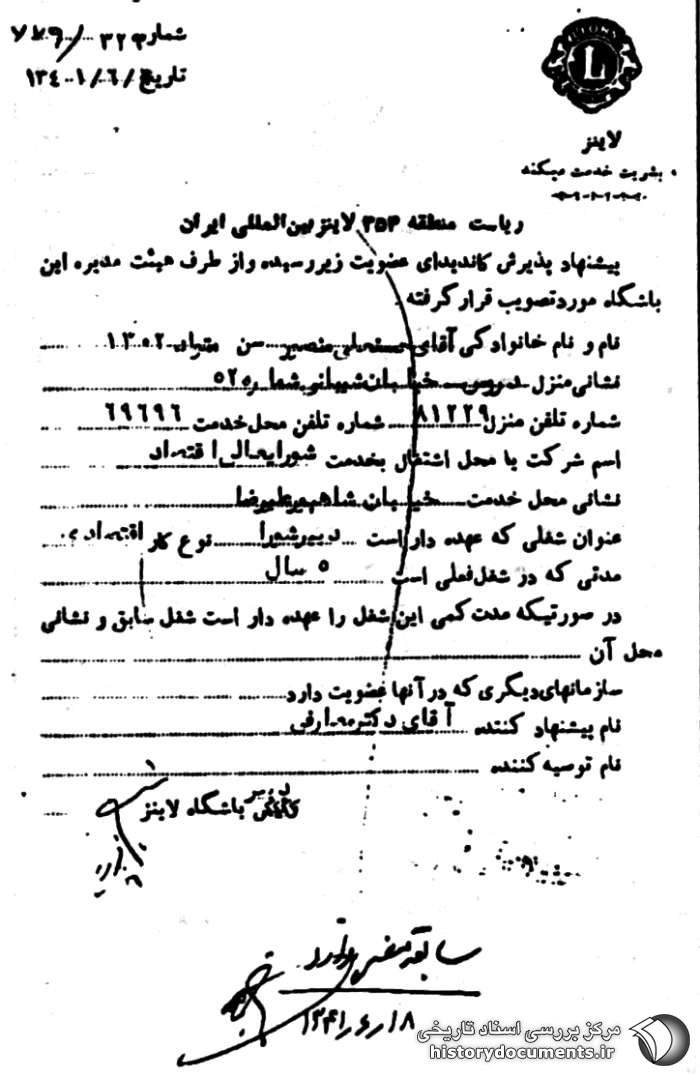 شماره ۳۲۳/۷۷۹
تاریخ ۱۳۴۰/۶/۱
LIONS
L
لاینز
بشریت خدمت میکند
ریاست منطقه ۳۵۳ لاینز بین‌المللی ایران
پیشنهاد پذیرش کاندیدای عضویت زیر رسیده و از طرف هیئت مدیره این
باشگاه مورد تصویب قرار گرفته.
نام و نام خانوادگی آقای حسنعلی منصور سن متولد ۱۳۰۲
نشانی منزل دروس خیابان شیبانو شماره ۵۲۵
شماره تلفن منزل ۸۱۲۲۹ شماره تلفن محل خدمت ۶۹۶۹۶
اسم شرکت یا محل اشتغال بخدمت شورایعالی اقتصاد
نشانی محل خدمت خیابان شاهپور علیرضا
عنوان شغلی که عهده دار است دبیر شورا نوع کار اقتصادی
مدتی که در شغل فعلی است ۵ سال
در صورتیکه مدت کمی این شغل را عهده دار است شغل سابق و نشانی
محل آن
سازمانهای دیگری که در آنها عضویت دارد
نام پیشنهاد کننده آقای دکتر معارفی
نام توصیه کننده
دبیر باشگاه لاینز
سابقه مضر ندارد
۱۳۴۱/۶/۱۸
مرکز بررسی اسناد تاریخی
historydocuments.ir